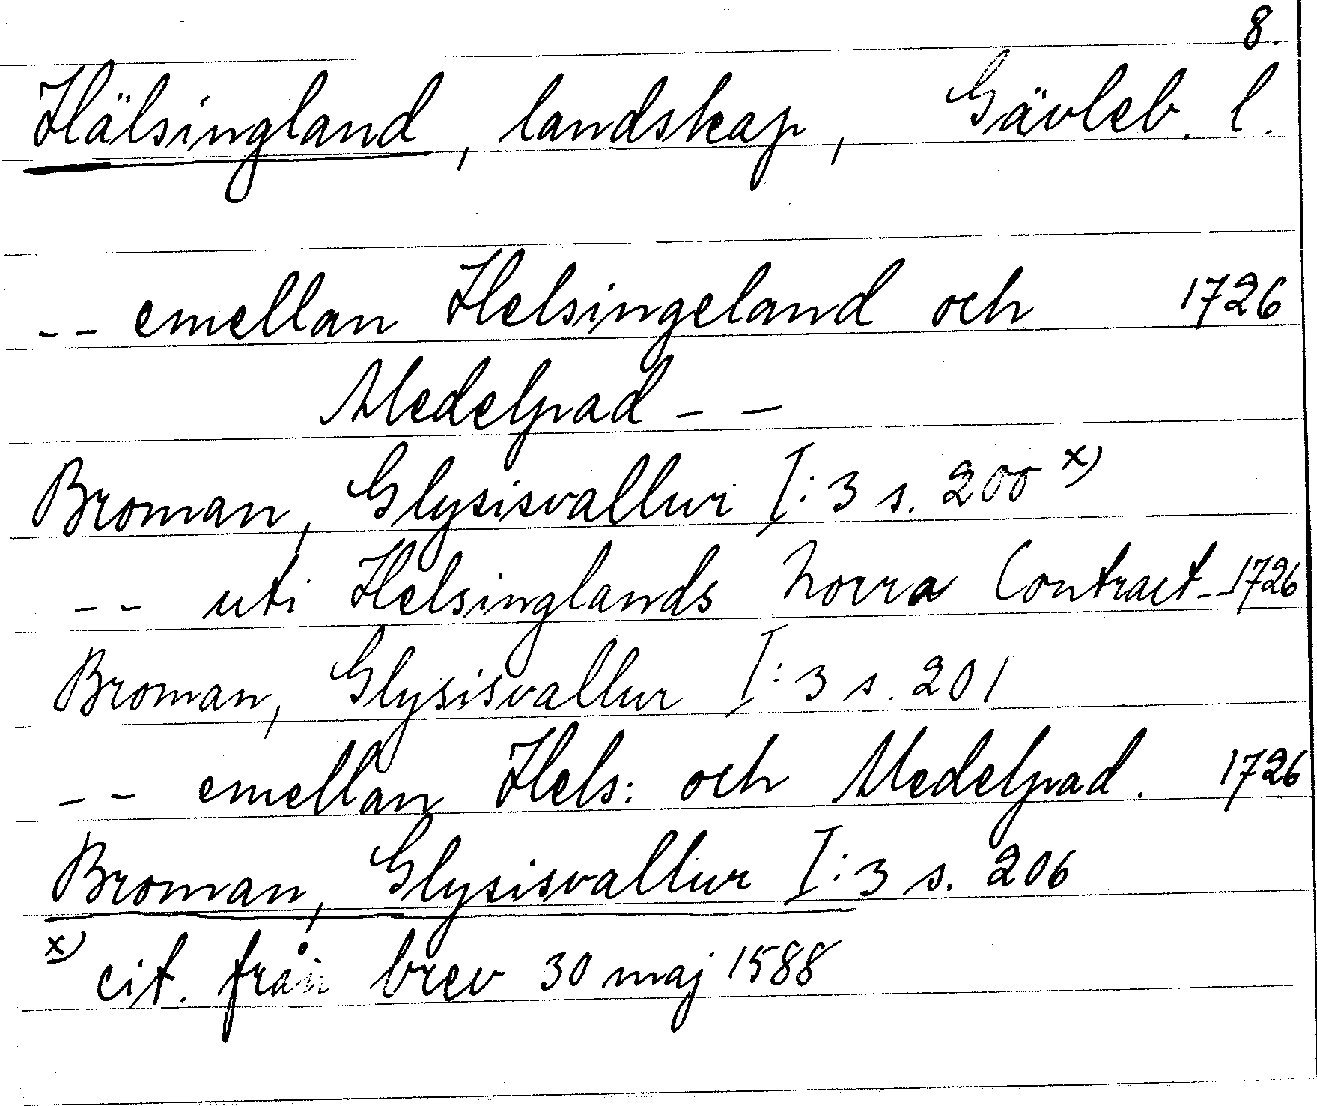 8.
Hälsingland, landskap, Gävleb. l.
-- emellan Helsingeland och 1726
Medelpad --
Broman, Glysisvallur I:3 s. 200 x)
-- uti Helsinglands Norra Contract -- 1726
Broman, Glysisvallur I:3 s. 201
-- emellan Hels: och Medelpad. 1726
Broman, Glysisvallur I:3 s. 206
x) cit. från brev 30 maj 1588